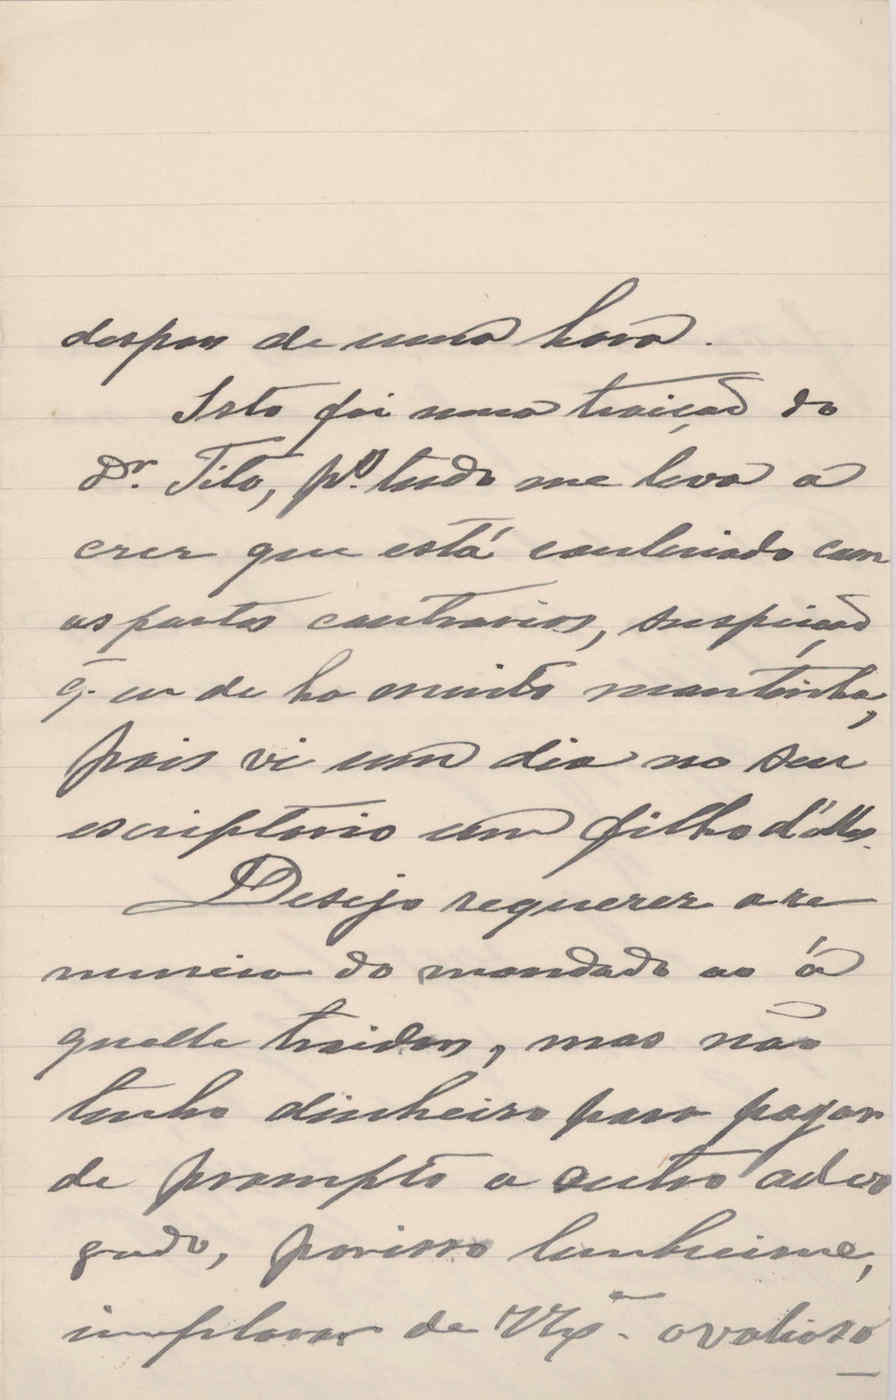 despois de uma hora.
Isto foi uma traiçaõ do
Dr. Tito, pº. tudo me leva a
crer que está conluiado com
as partes contrarias, suspeiçaõ
q. eu de ha muito mantinha,
pois vi um dia no seu
escriptorio um filho d'elles.
Desejo requerer a re
nuncia do mandado ao á
quelle traidor, mas não
tenho dinheiro para pagar
de prompto a outro advo
gado, porisso lembreime,
implorar de Vª. o valioso